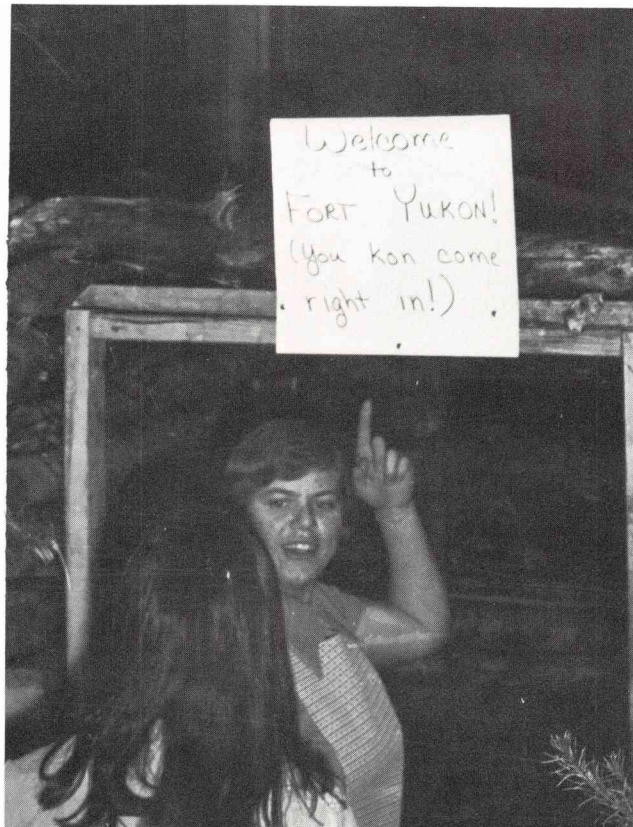 Welcome
to
FORT YUKON!
(You kon come
right in!)